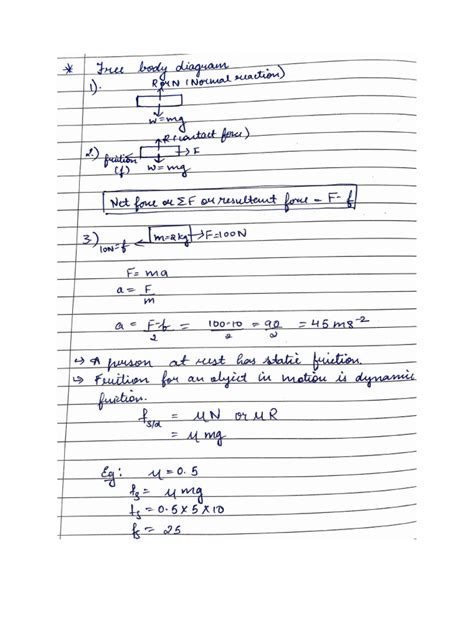 * Free body diagram
1). R or N (Normal reaction)
W=mg
R (contact force)
2) friction (f) → F
W=mg
Net force or ΣF or resultant force = F-f
3) 10N=f ← m=2kg → F=100N
F=ma
a = F/m
a = F-f/2 = 100-10/2 = 90/2 = 45ms⁻²
↳ A person at rest has static friction.
↳ Friction for an object in motion is dynamic
friction.
fs/d = μN or μR
= μmg
Eg: μ=0.5
fs = μmg
fs = 0.5×5×10
fs = 25